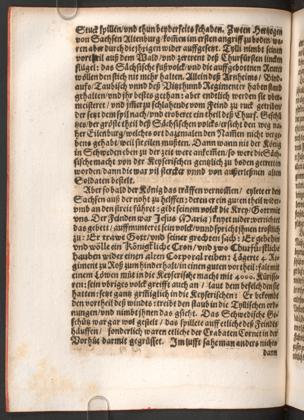 Stuck spillen/ und thun beyderseits schaden. Zween Hertzogen
von Sachsen Altenburg komen im ersten angriff zu boden/ wa-
ren aber durch die jhrigen wider auffgesetzt. Tylli nimbt seinen
vortheil auß dem Wald/ und
flügel: das Sächsische fußvolck und die auffgebottnen Reuter
wöllen den stich nit mehr halten. Allein deß Arnheimbs/ Bind-
aufs/ Taubisch und deß Regimenter haben stand
gehalten/ und jhr bestes gethan: aber endtlich werden sie übe-
meistert/ und hinder sich vom Feind zu ruck getriben
der setzt dem spil nach/ und erobert ein theil deß Churf. Geschü-
tzes/ der größte theil deß Sächsischen volcks wischet den weg na-
cher Eilenburg/ welches ort dazemalen den Namen nicht verge-
bens gehabt/ weil sie eilen mußten. Dann wann nit der König
in Schweden eben zu der zeit were ankomen/ so were die Säch-
sische macht von der Keyserischen gentzlich zu boden getretten
worden/ dann die war vil stercker und von außerleßnen alten
Soldaten bestelt.
Aber so bald der König das träffen vernomen/ eylete er den
Sachsen auß der noht zu helffen: deren er ein guten theil wider-
umb an den streit führet: gibt seinem volck die Krey/ Gott mit
uns. Der Feinden war Jesus Maria: knyet nider verrichtet
das gebätt/ auffmuntert sein volck/ und spricht jhnen trostlich
zu: Er trawe Gott/ und seiner grechten sach: Er gebe hin
und wölle ein Königkliche Cron/ und zwo Churfürstliche
hauben wider einen alten Corporal
giment zu Roß zum hinderhalt/ in einen guten vortheil: falt mit
einem Löwen mut in die Keyserische macht mit 4000. Küriss-
ren: sein übriges volck greifft auch an/ laut dem befelch den sie
hatten: setzt gantz grimmigklich in die Keyserischen: Er bekomt
den vortheil deß winds: treibt den staub in die Tyllischen ord-
nungen/ und nimbt jhnen das gsicht. Das Schwedische Ge-
schütz war gar wol gestelt/ das spillete auff etliche deß Feinds
häuffen/ sonderlich waren etliche der Crabaten Cornet in der
Vorhut darmit gegrüsset. Im lufft sahe man anders nichts
dann